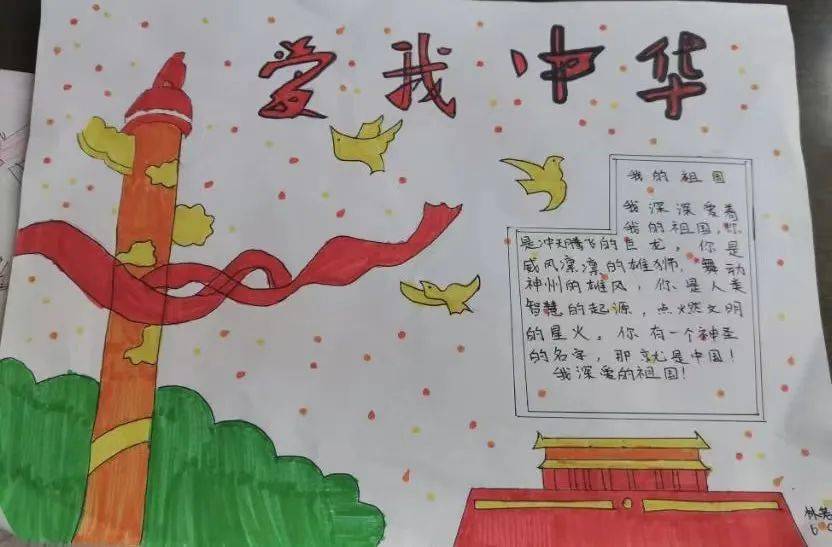 爱我中华
我的祖国
我深深爱着
我的祖国，你
是冲天腾飞的巨龙，你是
威风凛凛的雄狮，舞动
神州的雄风，你是人类
智慧的起源，点燃文明
的星火。你有一个神圣
的名字，那就是中国！
我深爱的祖国！